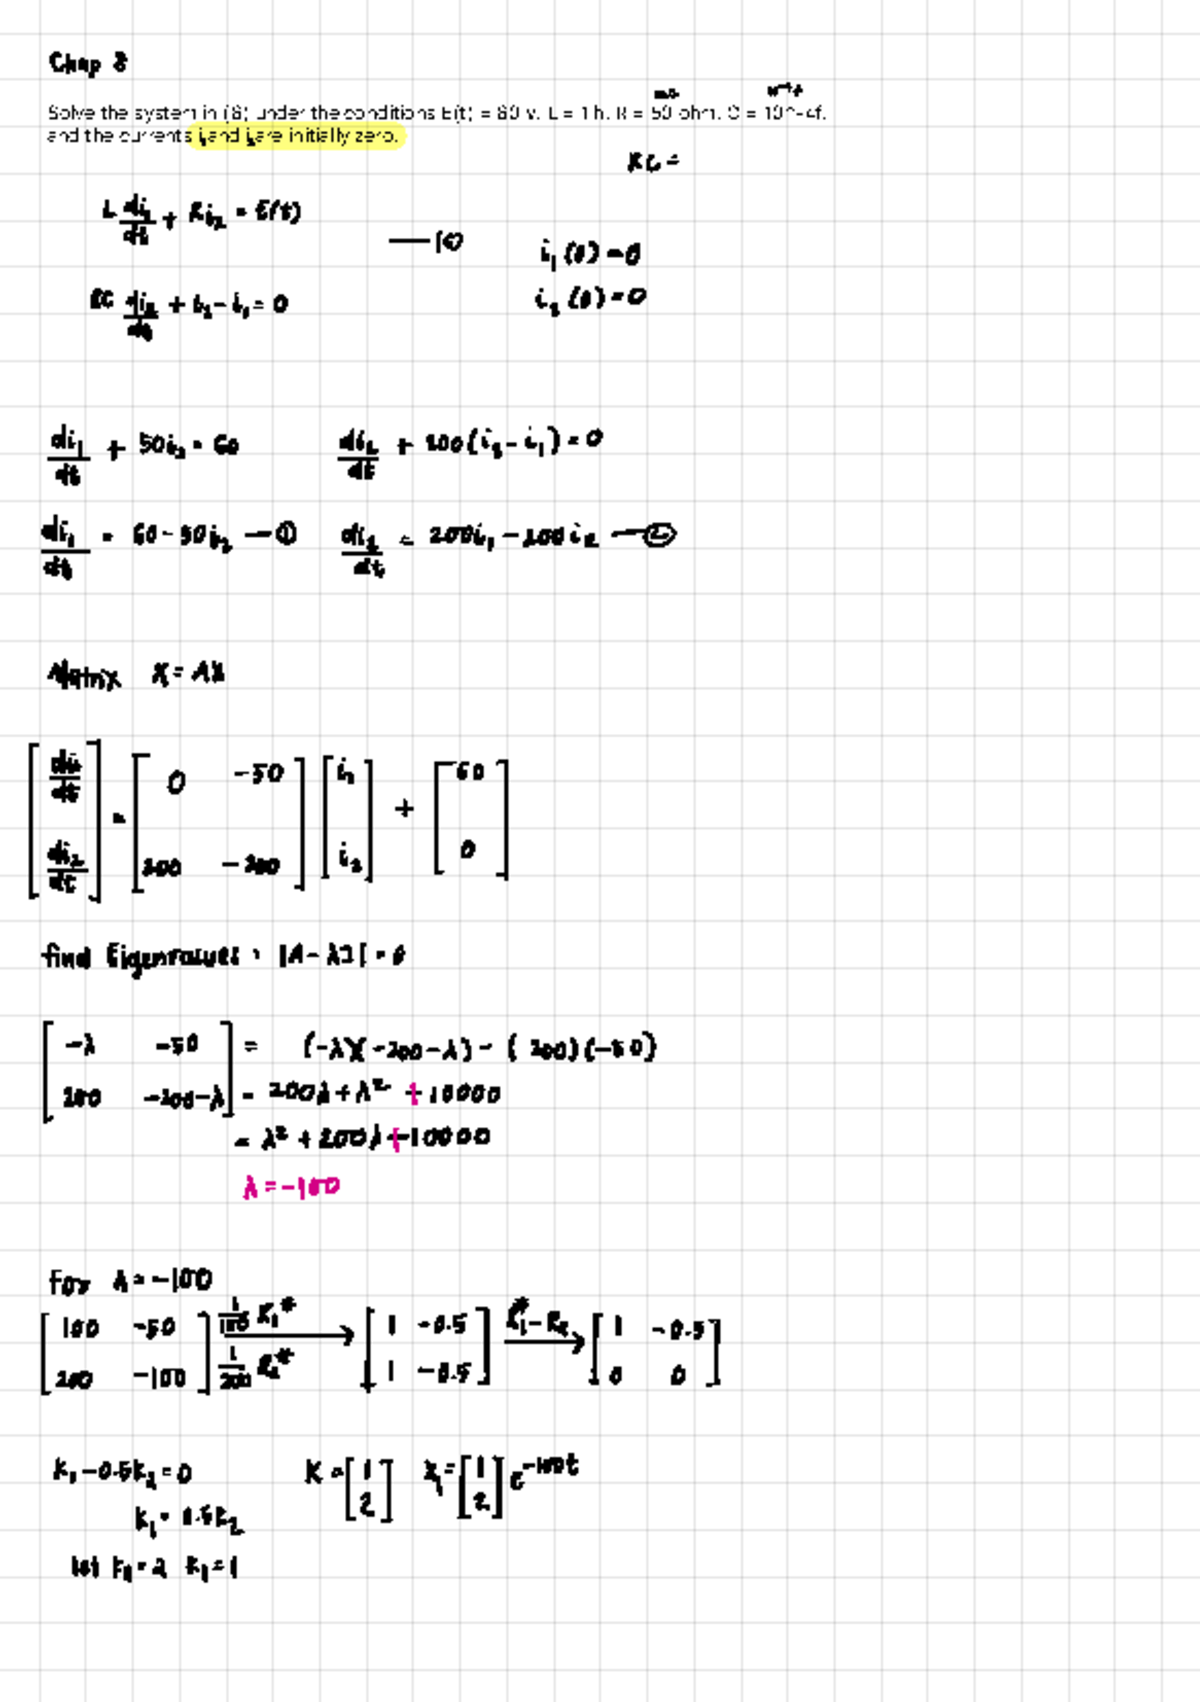 Chap 8
Solve the system in (6) under the conditions E(t) = 60 v. L = 1 h. R = 50 ohm. C = 10^-4f.
and the currents i₁ and i₂ are initially zero.
RC =
L di₁/dt + Ri₂ = E(t)
i₁(0) = 0
RC di₂/dt + i₂ - i₁ = 0
i₂(0) = 0
di₁/dt + 50i₂ = 60 di₂/dt + 200(i₂ - i₁) = 0
di₁/dt = 60 - 50i₂ — ① di₂/dt = 200i₁ - 200i₂ — ②
Matrix X = AX
[di₁/dt; di₂/dt] = [0 -50; 200 -200] [i₁; i₂] + [60; 0]
find Eigenvalues : |A - λI| = 0
[-λ -50; 200 -200-λ] = (-λ)(-200-λ) - (200)(-50)
= 200λ + λ² + 10000
= λ² + 200λ + 10000
λ = -100
For λ = -100
[100 -50; 200 -100] 1/100 R₁* 1/200 R₂* → [1 -0.5; 1 -0.5] R₁ - R₂* → [1 -0.5; 0 0]
k₁ - 0.5k₂ = 0 K = [1; 2] X₁ = [1; 2] e^-100t
k₁ = 0.5k₂
let k₂ = 2 k₁ = 1